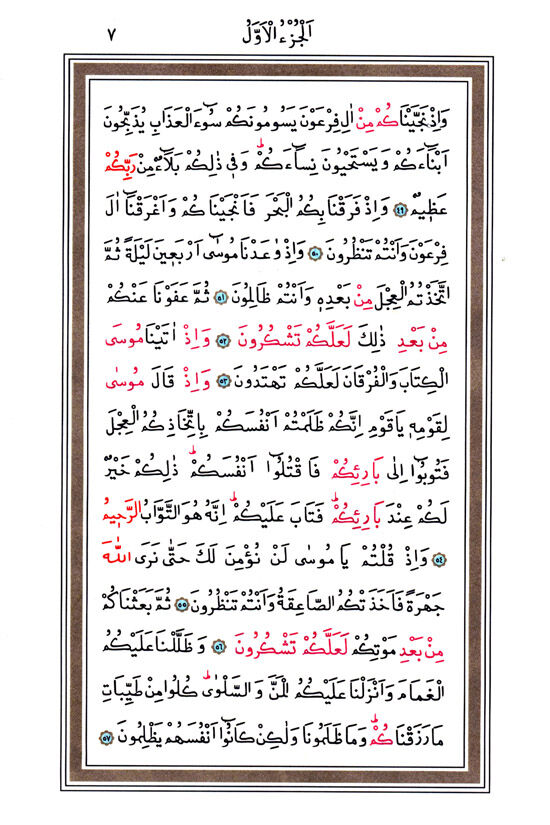 اَلْجُزْءُ الْاَوَّلُ ٧
وَاِذْ نَجَّيْنَاكُمْ مِنْ اٰلِ فِرْعَوْنَ يَسُومُونَكُمْ سُٓوءَ الْعَذَابِ يُذَبِّحُونَ
اَبْنَٓاءَكُمْ وَيَسْتَحْيُونَ نِسَٓاءَكُمْۜ وَفٖي ذٰلِكُمْ بَلَٓاءٌ مِنْ رَبِّكُمْ
عَظٖيمٌ ٤٩ وَاِذْ فَرَقْنَا بِكُمُ الْبَحْرَ فَاَنْجَيْنَاكُمْ وَاَغْرَقْنَٓا اٰلَ
فِرْعَوْنَ وَاَنْتُمْ تَنْظُرُونَ ٥٠ وَاِذْ وٰعَدْنَا مُوسٰٓى اَرْبَعٖينَ لَيْلَةً ثُمَّ
اتَّخَذْتُمُ الْعِجْلَ مِنْ بَعْدِهٖ وَاَنْتُمْ ظَالِمُونَ ٥١ ثُمَّ عَفَوْنَا عَنْكُمْ
مِنْ بَعْدِ ذٰلِكَ لَعَلَّكُمْ تَشْكُرُونَ ٥٢ وَاِذْ اٰتَيْنَا مُوسَى
الْكِتَابَ وَالْفُرْقَانَ لَعَلَّكُمْ تَهْتَدُونَ ٥٣ وَاِذْ قَالَ مُوسٰى
لِقَوْمِهٖ يَا قَوْمِ اِنَّكُمْ ظَلَمْتُمْ اَنْفُسَكُمْ بِاتِّخَاذِكُمُ الْعِجْلَ
فَتُوبُٓوا اِلٰى بَارِئِكُمْ فَاقْتُلُٓوا اَنْفُسَكُمْۜ ذٰلِكُمْ خَيْرٌ
لَكُمْ عِنْدَ بَارِئِكُمْۜ فَتَابَ عَلَيْكُمْۜ اِنَّهُ هُوَ التَّوَّابُ الرَّحٖيمُ
٥٤ وَاِذْ قُلْتُمْ يَا مُوسٰى لَنْ نُؤْمِنَ لَكَ حَتّٰى نَرَى اللّٰهَ
جَهْرَةً فَاَخَذَتْكُمُ الصَّاعِقَةُ وَاَنْتُمْ تَنْظُرُونَ ٥٥ ثُمَّ بَعَثْنَاكُمْ
مِنْ بَعْدِ مَوْتِكُمْ لَعَلَّكُمْ تَشْكُرُونَ ٥٦ وَظَلَّلْنَا عَلَيْكُمُ
الْغَمَامَ وَاَنْزَلْنَا عَلَيْكُمُ الْمَنَّ وَالسَّلْوٰىۜ كُلُوا مِنْ طَيِّبَاتِ
مَا رَزَقْنَاكُمْۜ وَمَا ظَلَمُونَا وَلٰكِنْ كَانُٓوا اَنْفُسَهُمْ يَظْلِمُونَ ٥٧